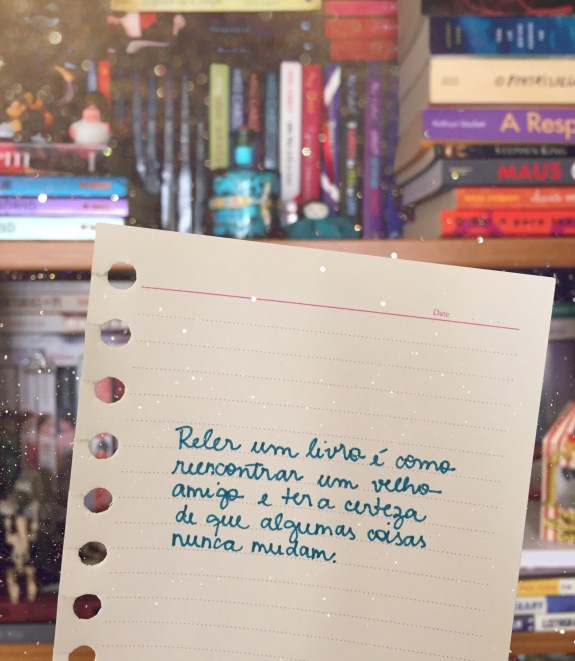 A Resp
STEPHEN KING
MAUS
Date
Reler um livro é como
reencontrar um velho
amigo e ter a certeza
de que algumas coisas
nunca mudam.